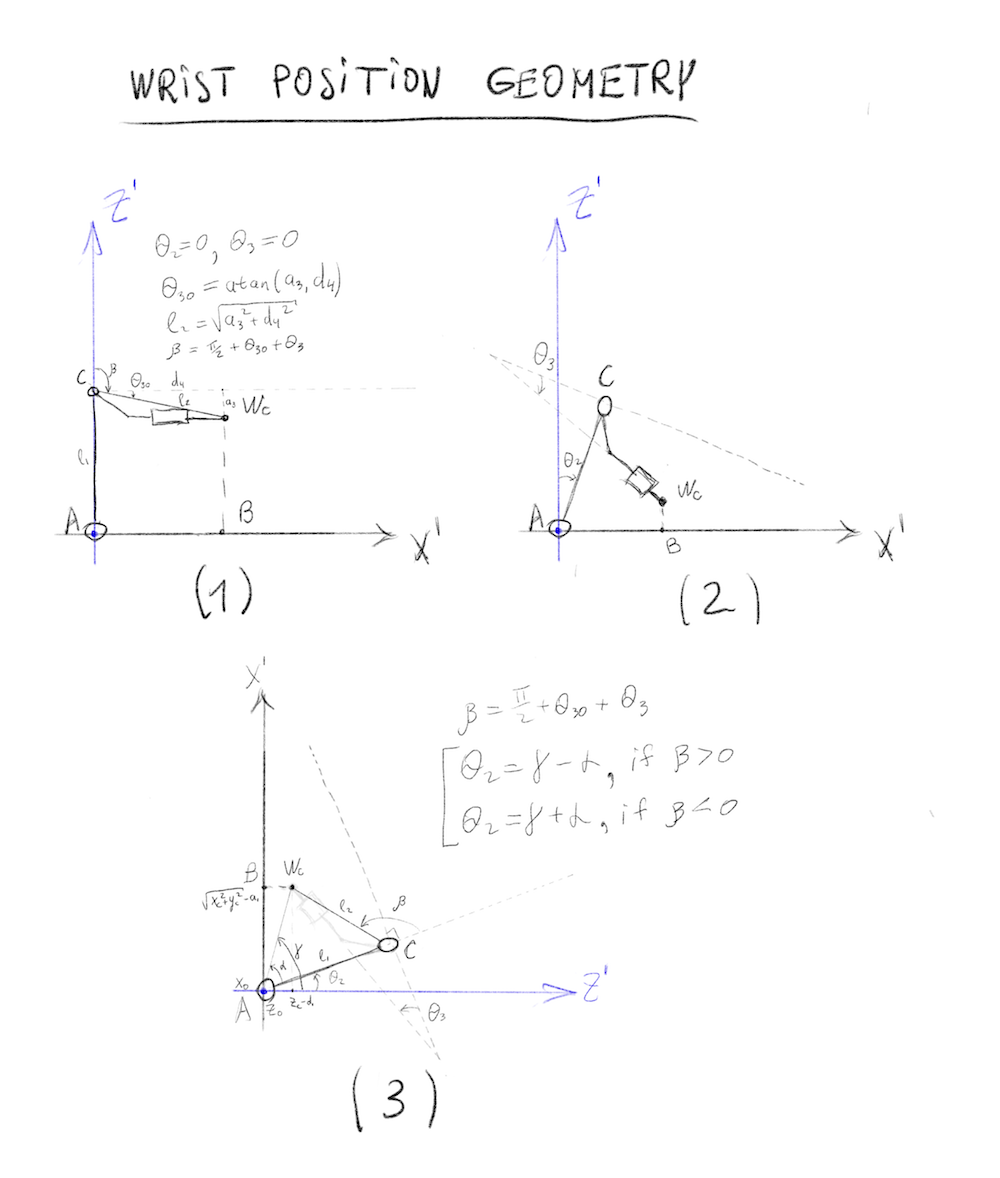 WRIST POSITION GEOMETRY
Z'
θ₂=0, θ₃=0
θ₃₀ = atan(a₃, d₄)
l₂ = √(a₃² + d₄²)
β = π/2 + θ₃₀ + θ₃
C β θ₃₀ d₄
l₂ a₃ Wc
l₁
A B
X'
(1)
Z'
θ₃
C
θ₂
Wc
A B
X'
(2)
X'
β = π/2 + θ₃₀ + θ₃
θ₂ = γ - α, if β > 0
θ₂ = γ + α, if β < 0
B Wc
√(xc²+yc²) - a₁
l₂ β
C
γ l₁
α θ₂
x₀
A z₀ zc-d₁
Z'
θ₃
(3)